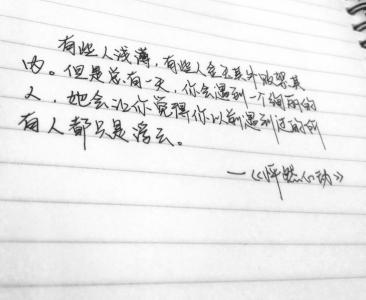 有些人浅薄,有些人金玉其外败絮其
内。但是总有一天,你会遇到一个绚丽的
人,她会让你觉得你以前遇到过的所
有人都只是浮云。
—《怦然心动》